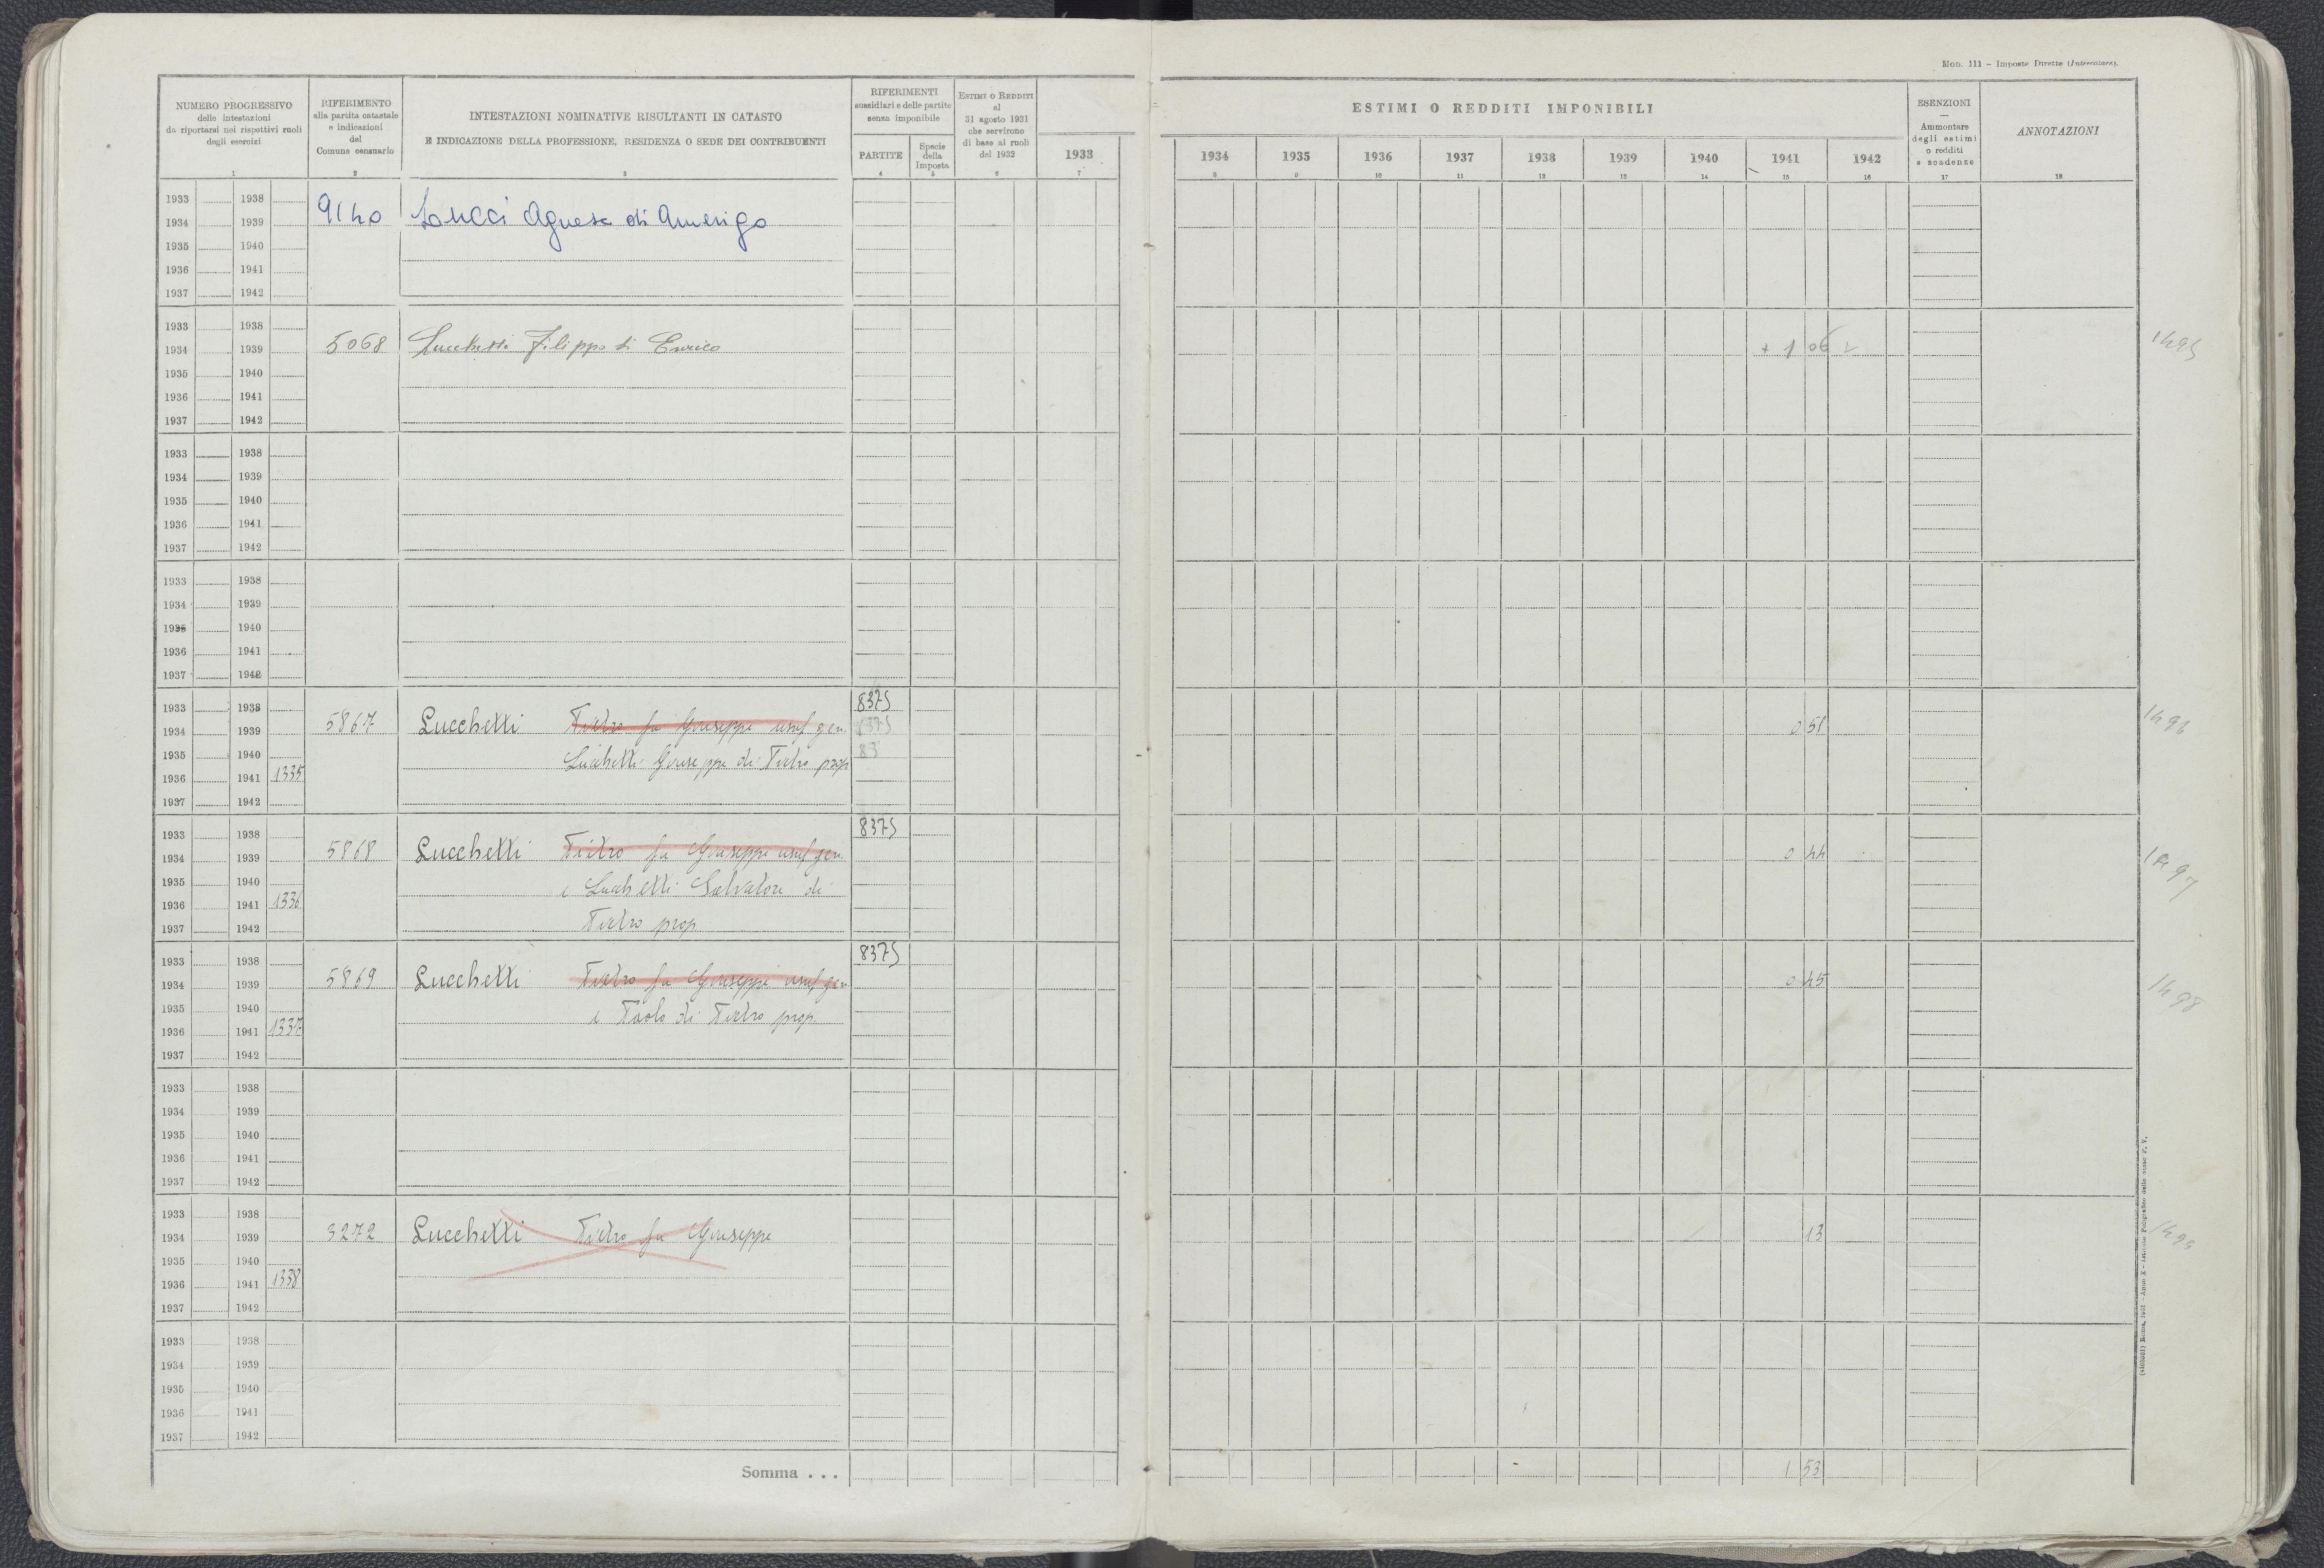 Mod. 111 - Imposte Dirette (Intercalare).
NUMERO PROGRESSIVO
delle intestazioni
da riportarsi nei rispettivi ruoli
degli esercizi
1
RIFERIMENTO
alla partita catastale
e indicazioni
del
Comune censuario
2
INTESTAZIONI NOMINATIVE RISULTANTI IN CATASTO
E INDICAZIONE DELLA PROFESSIONE, RESIDENZA O SEDE DEI CONTRIBUENTI
3
RIFERIMENTI
sussidiari e delle partite
senza imponibile
PARTITE
4
Specie
della
Imposta
5
ESTIMI O REDDITI
al
31 agosto 1931
che servirono
di base ai ruoli
del 1932
6
1933
7
ESTIMI O REDDITI IMPONIBILI
1934 1935 1936 1937 1938 1939 1940 1941 1942
8 9 10 11 12 13 14 15 16
ESENZIONI
Ammontare
degli estimi
o redditi
e scadenze
17
ANNOTAZIONI
18
1933 1938
1934 1939 9140 Lucci Agnese di Amerigo
1935 1940
1936 1941
1937 1942
1933 1938
1934 1939 5068 Lucchetti Filippo di Enrico + 1 06 1495
1935 1940
1936 1941
1937 1942
1933 1938
1934 1939
1935 1940
1936 1941
1937 1942
1933 1938
1934 1939
1935 1940
1936 1941
1937 1942
1933 1938 8375
1934 1939 5867 Lucchetti Pietro fu Giuseppe usuf gen. 8375 0 51 1496
1935 1940 Lucchetti Giuseppe di Pietro prop 83
1936 1941 1335
1937 1942
1933 1938 8375
1934 1939 5868 Lucchetti Pietro fu Giuseppe usuf gen. 0 44 1497
1935 1940 e Lucchetti Salvatore di
1936 1941 1336
1937 1942 Pietro prop.
1933 1938 8375
1934 1939 5869 Lucchetti Pietro fu Giuseppe usuf gen 0 45 1498
1935 1940 e Paolo di Pietro prop.
1936 1941 1337
1937 1942
1933 1938
1934 1939
1935 1940
1936 1941
1937 1942
1933 1938
1934 1939 3272 Lucchetti Pietro fu Giuseppe 13
1935 1940
1936 1941 1338
1937 1942
1933 1938
1934 1939
1935 1940
1936 1941
1937 1942
Somma . . . 1 53